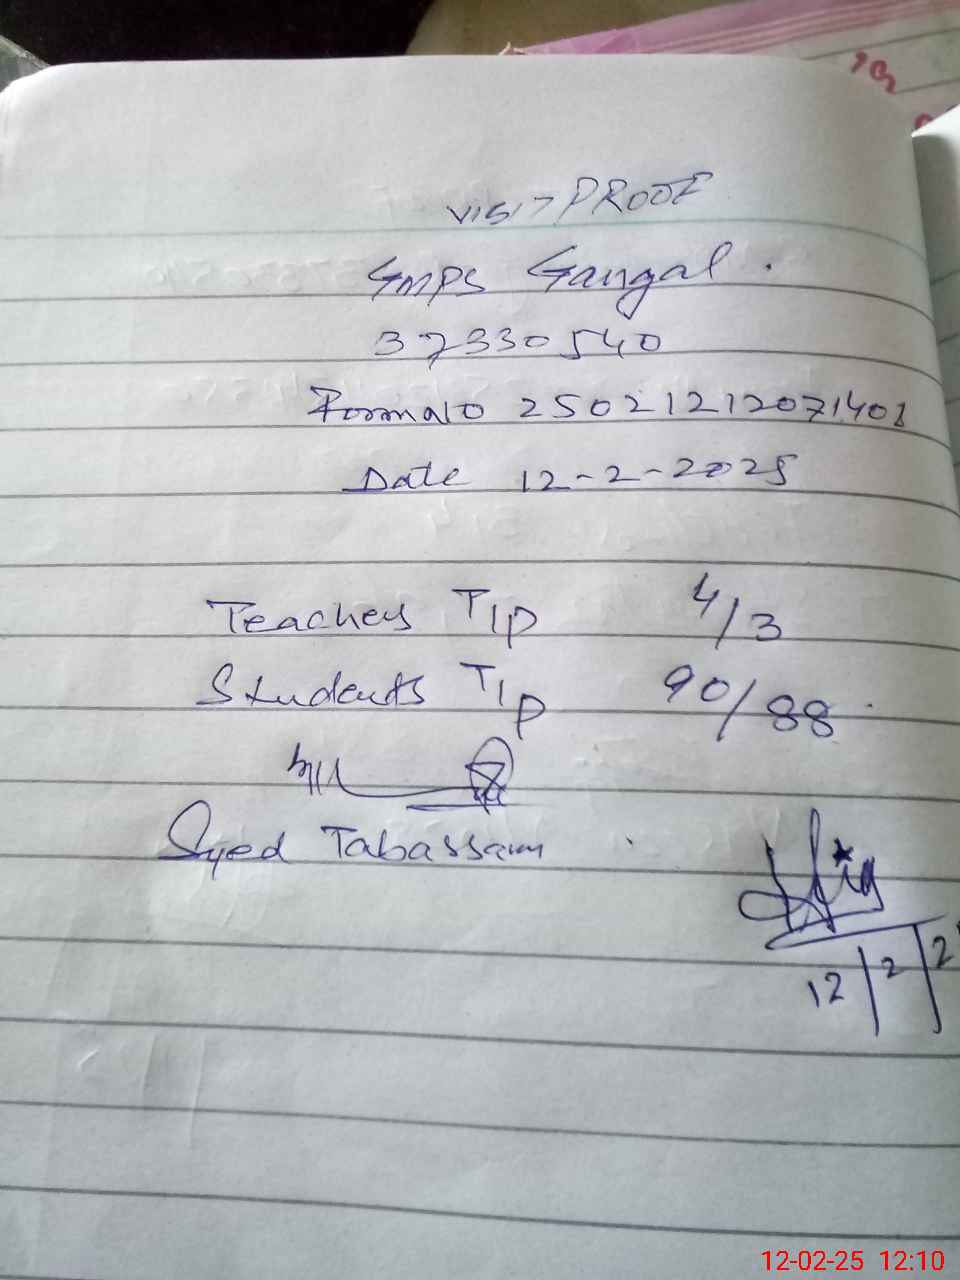 VISIT PROOF
GMPS Gangal.
37330540
Formno 25021212071401
Date 12-2-2025
Teachers T/P 4/3
Students T/P 90/88
Syed Tabassam
12/2/2
12-02-25 12:10